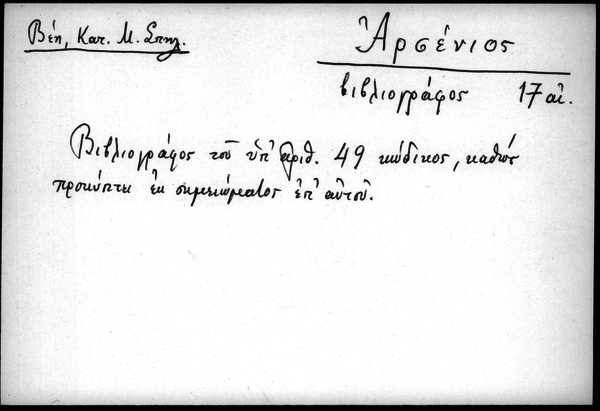 Βέη, Κατ. Μ. Σπηλ.
Ἀρσένιος
βιβλιογράφος 17 αἰ.
Βιβλιογράφος τοῦ ὑπ' ἀριθ. 49 κώδικος, καθὼς
προκύπτει ἐκ σημειώματος ἐπ' αὐτοῦ.